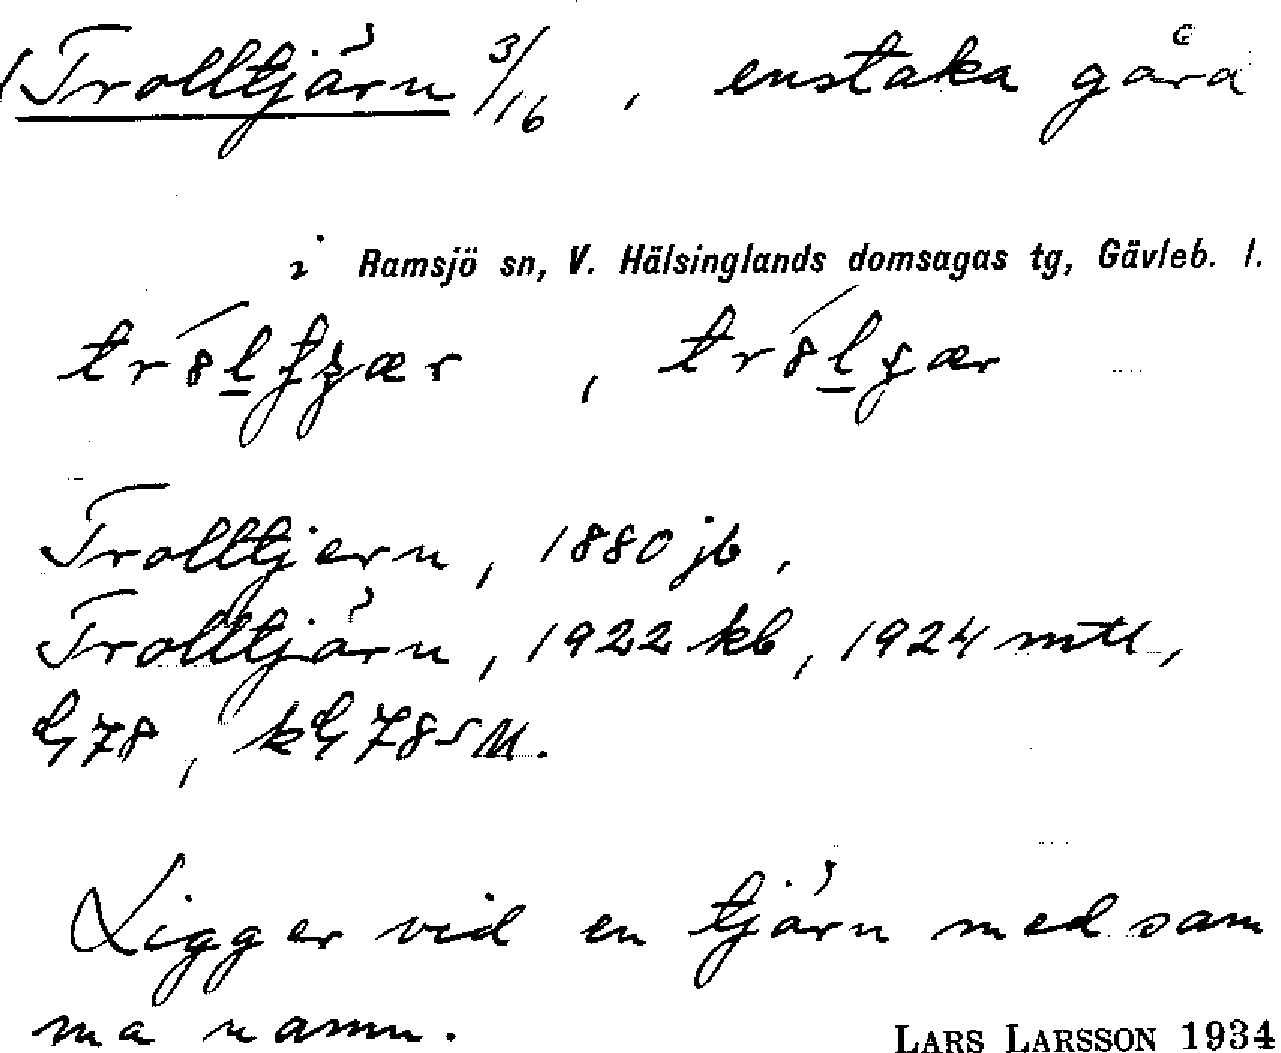 Trolltjärn 3/16, enstaka gård
i Ramsjö sn, V. Hälsinglands domsagas tg, Gävleb. l.
Trolltjern, 1880 jb,
Trolltjärn, 1922 kb, 1924 mtl,
G 78, kG 78 SM.
Ligger vid en tjärn med sam
ma namn.
LARS LARSSON 1934